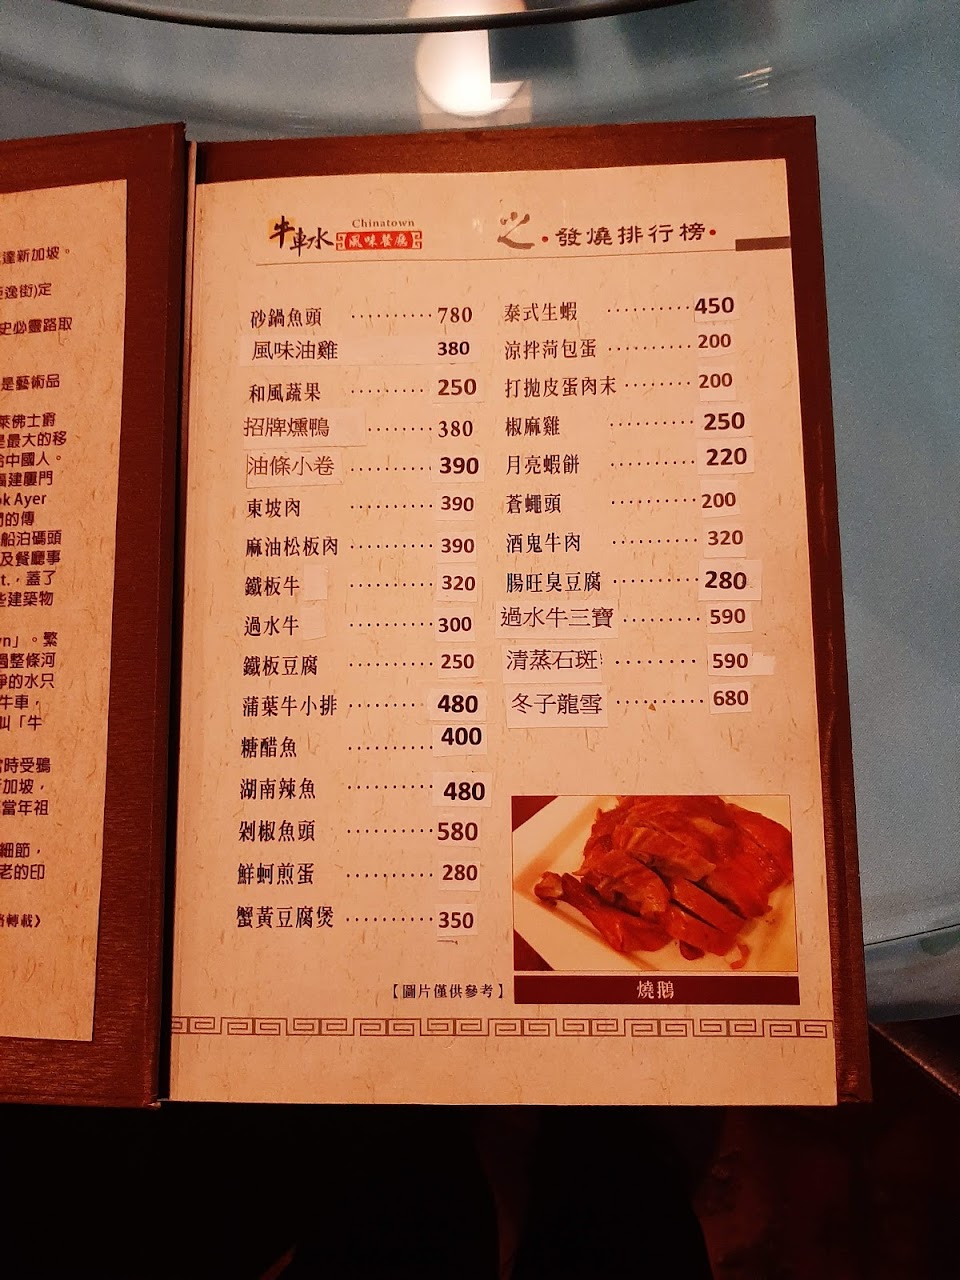 達新加坡。
逸街)定
史必靈路取
是藝術品
萊佛士爵
是最大的移
中國人。
福建廈門
ok Ayer
們的傳
船泊碼頭
及餐廳事
t.，蓋了
些建築物
wn」。繁
過整條河
淨的水只
牛車，
叫「牛
當時受鴉
新加坡，
當年祖
細節，
老的印
轉載》
牛車水 Chinatown 風味餐廳
之•發燒排行榜•
砂鍋魚頭 ·········· 780
風味油雞 380
和風蔬果 ·········· 250
招牌燻鴨 ·········· 380
油條小卷 ·········· 390
東坡肉 ·········· 390
麻油松板肉 ·········· 390
鐵板牛 ·········· 320
過水牛 ·········· 300
鐵板豆腐 ·········· 250
蒲葉牛小排 ·········· 480
糖醋魚 ·········· 400
湖南辣魚 ·········· 480
剁椒魚頭 ·········· 580
鮮蚵煎蛋 ·········· 280
蟹黃豆腐煲 ·········· 350
泰式生蝦 ·········· 450
涼拌荷包蛋 ·········· 200
打拋皮蛋肉末 ········ 200
椒麻雞 ·········· 250
月亮蝦餅 ·········· 220
蒼蠅頭 ·········· 200
酒鬼牛肉 ·········· 320
腸旺臭豆腐 ·········· 280
過水牛三寶 ·········· 590
清蒸石斑 ·········· 590
冬子龍雪 ·········· 680
【圖片僅供參考】
燒鵝